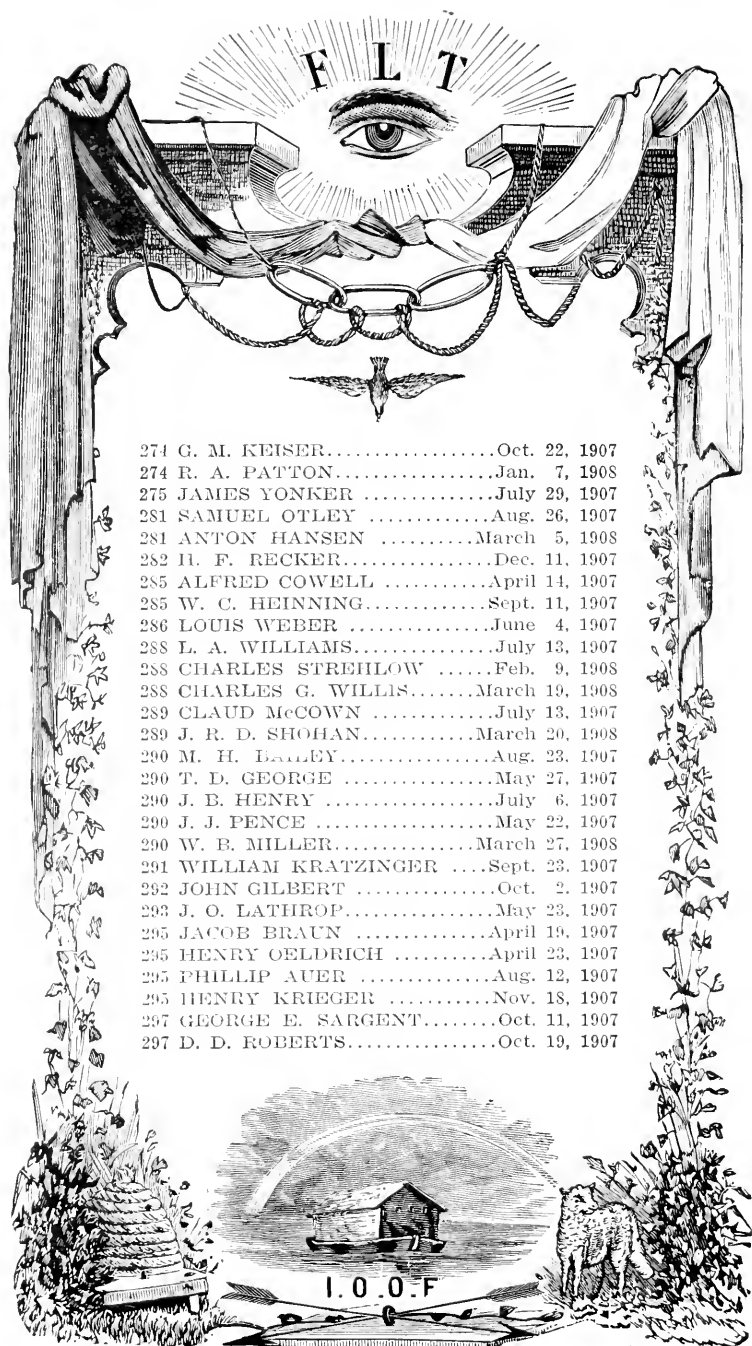 F L T
274 G. M. KEISER..................Oct. 22, 1907
274 R. A. PATTON.................Jan. 7, 1908
275 JAMES YONKER ..............July 29, 1907
281 SAMUEL OTLEY .............Aug. 26, 1907
281 ANTON HANSEN ..........March 5, 1908
282 H. F. RECKER................Dec. 11, 1907
285 ALFRED COWELL ...........April 14, 1907
285 W. C. HEINNING.............Sept. 11, 1907
286 LOUIS WEBER ...............June 4, 1907
288 L. A. WILLIAMS..............July 13, 1907
288 CHARLES STREHLOW ......Feb. 9, 1908
288 CHARLES G. WILLIS.......March 19, 1908
289 CLAUD McCOWN .............July 13, 1907
289 J. R. D. SHOHAN............March 20, 1908
290 M. H. BAILEY................Aug. 23, 1907
290 T. D. GEORGE ................May 27, 1907
290 J. B. HENRY ..................July 6, 1907
290 J. J. PENCE ...................May 22, 1907
290 W. B. MILLER...............March 27, 1908
291 WILLIAM KRATZINGER ....Sept. 23, 1907
292 JOHN GILBERT ...............Oct. 2, 1907
293 J. O. LATHROP................May 23, 1907
295 JACOB BRAUN ..............April 19, 1907
295 HENRY OELDRICH ..........April 23, 1907
295 PHILLIP AUER ...............Aug. 12, 1907
295 HENRY KRIEGER ...........Nov. 18, 1907
297 GEORGE E. SARGENT........Oct. 11, 1907
297 D. D. ROBERTS................Oct. 19, 1907
I.O.O.F